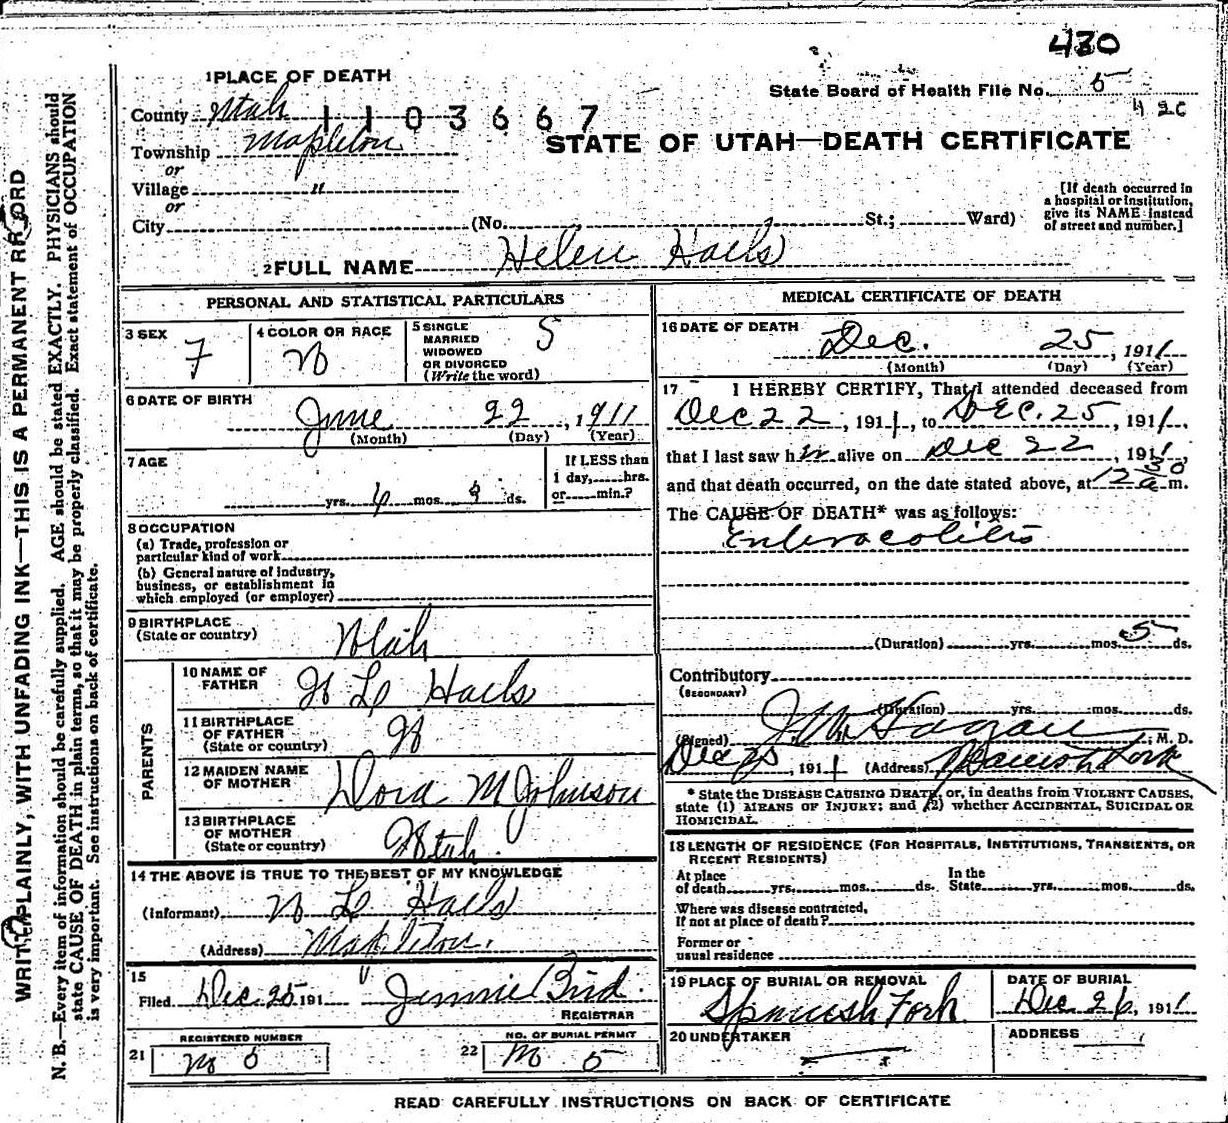 430
1 PLACE OF DEATH
State Board of Health File No. 5
County Utah
1103667
420
Township Mapleton
STATE OF UTAH—DEATH CERTIFICATE
or
Village "
or
City (No. St.; Ward)
[If death occurred in a hospital or institution, give its NAME instead of street and number.]
2 FULL NAME Helen Hails
PERSONAL AND STATISTICAL PARTICULARS
3 SEX F
4 COLOR OR RACE W
5 SINGLE MARRIED WIDOWED OR DIVORCED (Write the word) S
6 DATE OF BIRTH June 22, 1911
(Month) (Day) (Year)
7 AGE
yrs. 6 mos. ds.
If LESS than 1 day, hrs. or min.?
8 OCCUPATION
(a) Trade, profession or particular kind of work
(b) General nature of industry, business, or establishment in which employed (or employer)
9 BIRTHPLACE (State or country) Utah
PARENTS
10 NAME OF FATHER Hails
11 BIRTHPLACE OF FATHER (State or country)
12 MAIDEN NAME OF MOTHER Dora M Johnson
13 BIRTHPLACE OF MOTHER (State or country) Utah.
14 THE ABOVE IS TRUE TO THE BEST OF MY KNOWLEDGE
(Informant) Hails
(Address) Mapleton.
15
Filed Dec. 25 191 Jennie Bird.
REGISTRAR
21 REGISTERED NUMBER 5
22 NO. OF BURIAL PERMIT 5
MEDICAL CERTIFICATE OF DEATH
16 DATE OF DEATH Dec. 25, 1911
(Month) (Day) (Year)
17. I HEREBY CERTIFY, That I attended deceased from
Dec 22, 1911, to Dec. 25, 1911,
that I last saw h alive on Dec 22, 1911,
and that death occurred, on the date stated above, at 12 30 a m.
The CAUSE OF DEATH* was as follows:
Enterocolitis
(Duration) yrs. mos. 5 ds.
Contributory
(SECONDARY)
(Duration) yrs. mos. ds.
(Signed) Hagan, M. D.
Dec 25, 1911 (Address) Spanish Fork
* State the DISEASE CAUSING DEATH, or, in deaths from VIOLENT CAUSES,
state (1) MEANS OF INJURY; and (2) whether ACCIDENTAL, SUICIDAL OR
HOMICIDAL.
18 LENGTH OF RESIDENCE (FOR HOSPITALS, INSTITUTIONS, TRANSIENTS, OR
RECENT RESIDENTS)
At place of death yrs. mos. ds. In the State yrs. mos. ds.
Where was disease contracted,
If not at place of death?
Former or
usual residence
19 PLACE OF BURIAL OR REMOVAL Spanish Fork
DATE OF BURIAL Dec. 26, 1911
20 UNDERTAKER
ADDRESS
READ CAREFULLY INSTRUCTIONS ON BACK OF CERTIFICATE
WRITE PLAINLY, WITH UNFADING INK—THIS IS A PERMANENT RECORD
N. B.—Every item of information should be carefully supplied. AGE should be stated EXACTLY. PHYSICIANS should
state CAUSE OF DEATH in plain terms, so that it may be properly classified. Exact statement of OCCUPATION
is very important. See instructions on back of certificate.